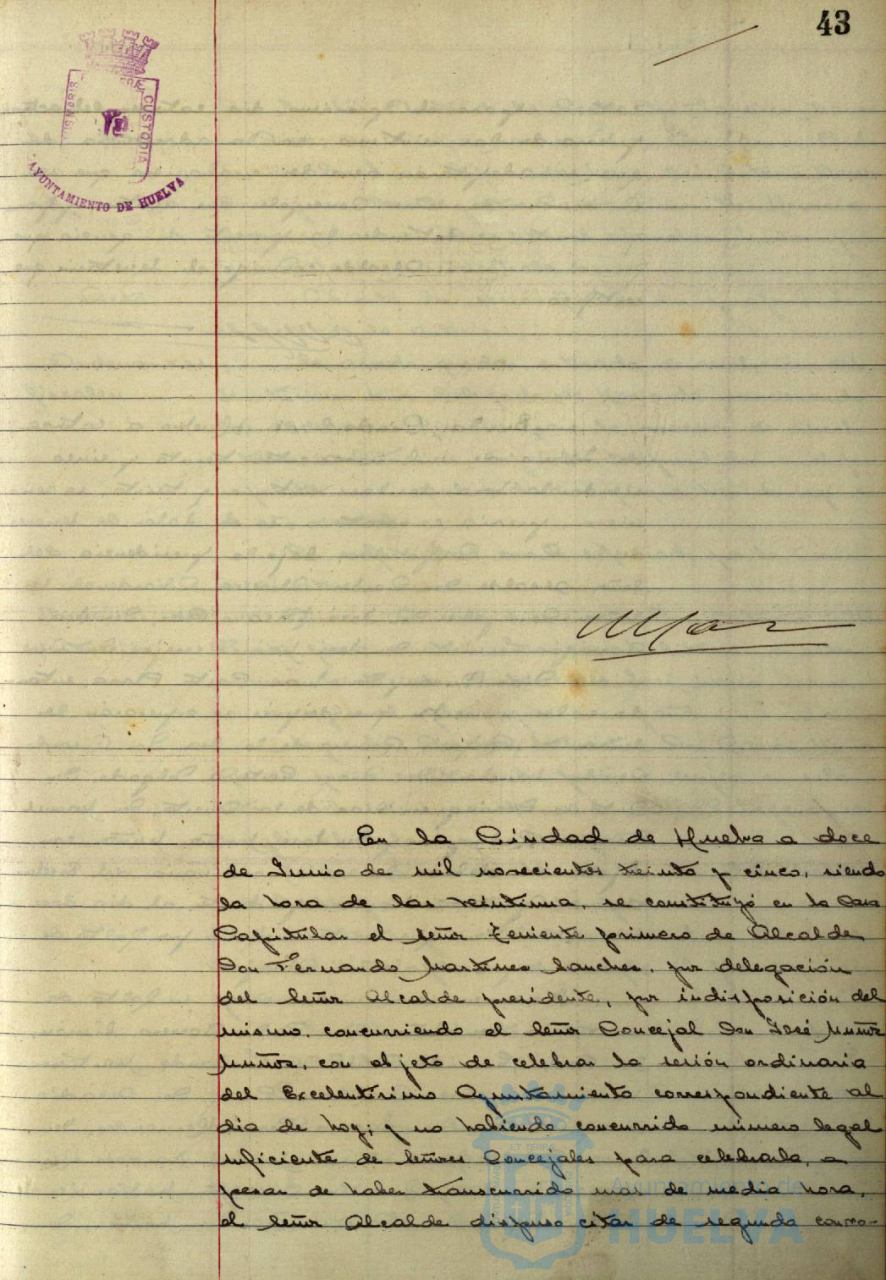 43
CUSTODIA
AYUNTAMIENTO DE HUELVA
En la Ciudad de Huelva a doce
de Junio de mil novecientos treinta y cinco, siendo
la hora de las veintiuna, se constituyó en la Casa
Capitular el señor Teniente primero de Alcalde
Don Fernando Martinez Sanchez, por delegación
del señor Alcalde presidente, por indisposición del
mismo, concurriendo el señor Concejal Don José Muñoz
Muñoz, con objeto de celebrar la sesión ordinaria
del Excelentisimo Ayuntamiento correspondiente al
dia de hoy; y no habiendo concurrido número legal
suficiente de señores Concejales para celebrarla, a
pesar de haber transcurrido mas de media hora,
el señor Alcalde dispuso citar de segunda convo-
Ayuntamiento de
HUELVA